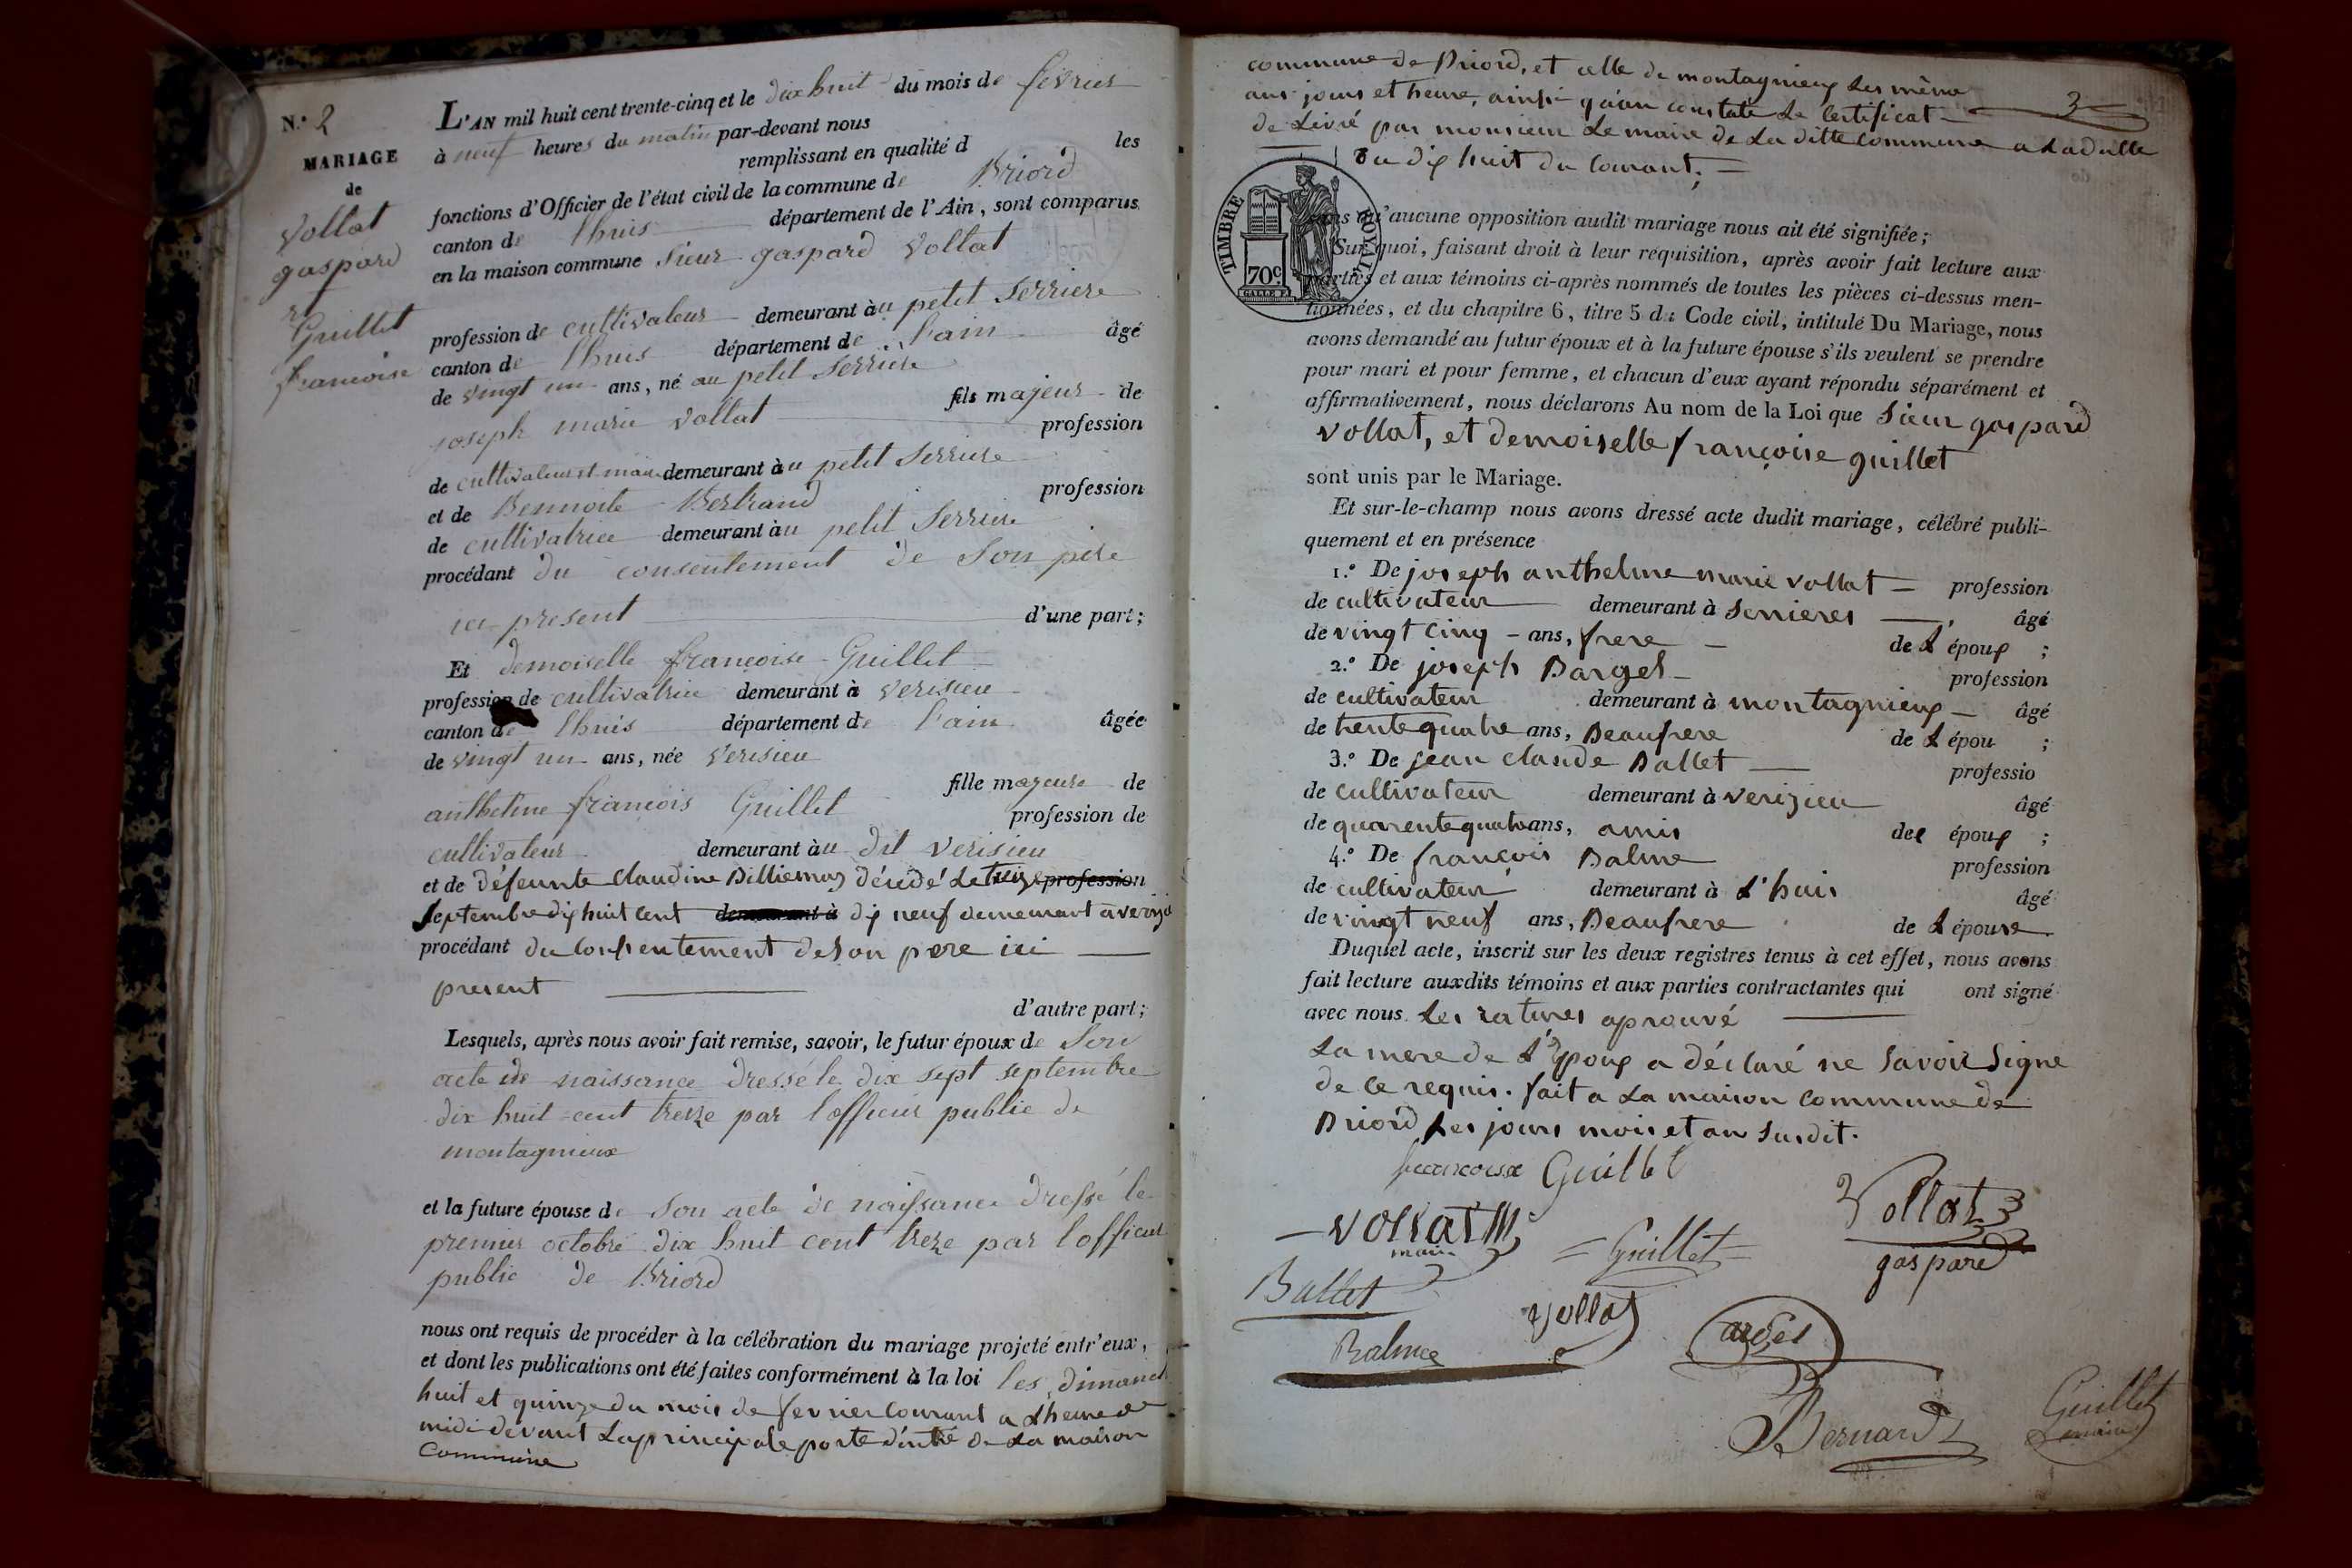 N.º 2
MARIAGE
de
Vollat
gaspard
et
Guillet
francoise
L'AN mil huit cent trente-cinq et le dix huit du mois de février
à neuf heures du matin par-devant nous
remplissant en qualité d les
fonctions d'Officier de l'état civil de la commune de Briord
canton de lhuis département de l'Ain, sont comparus
en la maison commune Sieur gaspard Vollat
profession de cultivateur demeurant àu petit Serriere
canton de lhuis département de l'ain âgé
de vingt un ans, né au petit Serriere
fils majeur de
joseph marie Vollat profession
de cultivateur et maire demeurant àu petit Serriere
et de Bennoite Bertrand profession
de cultivatrice demeurant àu petit Serriere
procédant du consentement de Son pere
ici present d'une part;
Et demoiselle francoise Guillet
profession de cultivatrice demeurant à verisieu
canton de lhuis département de l'ain âgée
de vingt un ans, née Verisieu
fille majeure de
anthelme francois Guillet profession de
cultivateur demeurant àu dit verisieu
et de défeunte Claudine Billiemaz décédé Le treize profession
Septembre dix huit cent demeurant à dix neuf demeurant a verizi
procédant du Consentement de Son pere ici
present
d'autre part;
Lesquels, après nous avoir fait remise, savoir, le futur époux de Son
acte de naissance dressé le dix sept septembre
dix huit cent treize par l'officier public de
montagnieux
et la future épouse de Son acte de naissance dressé le
premier octobre dix huit cent treze par l'officier
public de Briord
nous ont requis de procéder à la célébration du mariage projeté entr'eux,
et dont les publications ont été faites conformément à la loi les dimanch
huit et quinze du mois de fevrier Courant a L'heure de
midi devant La principale porte d'entré de La maison
Commune
commune de Briord, et celle de montagnieux Les même
3
ans jours et heure, ainsi qu'an constate Le Certificat
de Livré par monsieur Le maire de La ditte Commune a La datte
du dix huit du Courant;
TIMBRE ROYAL
70c
sans qu'aucune opposition audit mariage nous ait été signifiée;
Sur quoi, faisant droit à leur réquisition, après avoir fait lecture aux
parties et aux témoins ci-après nommés de toutes les pièces ci-dessus men-
tionnées, et du chapitre 6, titre 5 du Code civil, intitulé Du Mariage, nous
avons demandé au futur époux et à la future épouse s'ils veulent se prendre
pour mari et pour femme, et chacun d'eux ayant répondu séparément et
affirmativement, nous déclarons Au nom de la Loi que Sieur gaspard
Vollat, et demoiselle françoise guillet
sont unis par le Mariage.
Et sur-le-champ nous avons dressé acte dudit mariage, célébré publi-
quement et en présence
1.º De joseph anthelme marie vollat profession
de cultivateur demeurant à Serrieres âgé
de vingt cinq ans, frere de L époux ;
2.º De joseph Barget profession
de cultivateur demeurant à montagnieux âgé
de trente quatre ans, Beaufrere de L épou ;
3.º De jean claude Ballet professio
de cultivateur demeurant à verizieu âgé
de quarente quatre ans, amis des époux ;
4.º De françois Balme profession
de cultivateur demeurant à L'huis âgé
de vingt neuf ans, Beaufrere de L épouse
Duquel acte, inscrit sur les deux registres tenus à cet effet, nous avons
fait lecture auxdits témoins et aux parties contractantes qui ont signé
avec nous Les ratures aprouvé
La mere de L'Epoux a déclaré ne Savoir Signe
de Ce requis. fait a La maison Commune de
Briord Les jours mois et an Susdit.
francoise Guillet
Vollat
Vollat
maire
Guillet
gaspard
Ballet
Vollat
Balme
Bernard
Guillet
maire